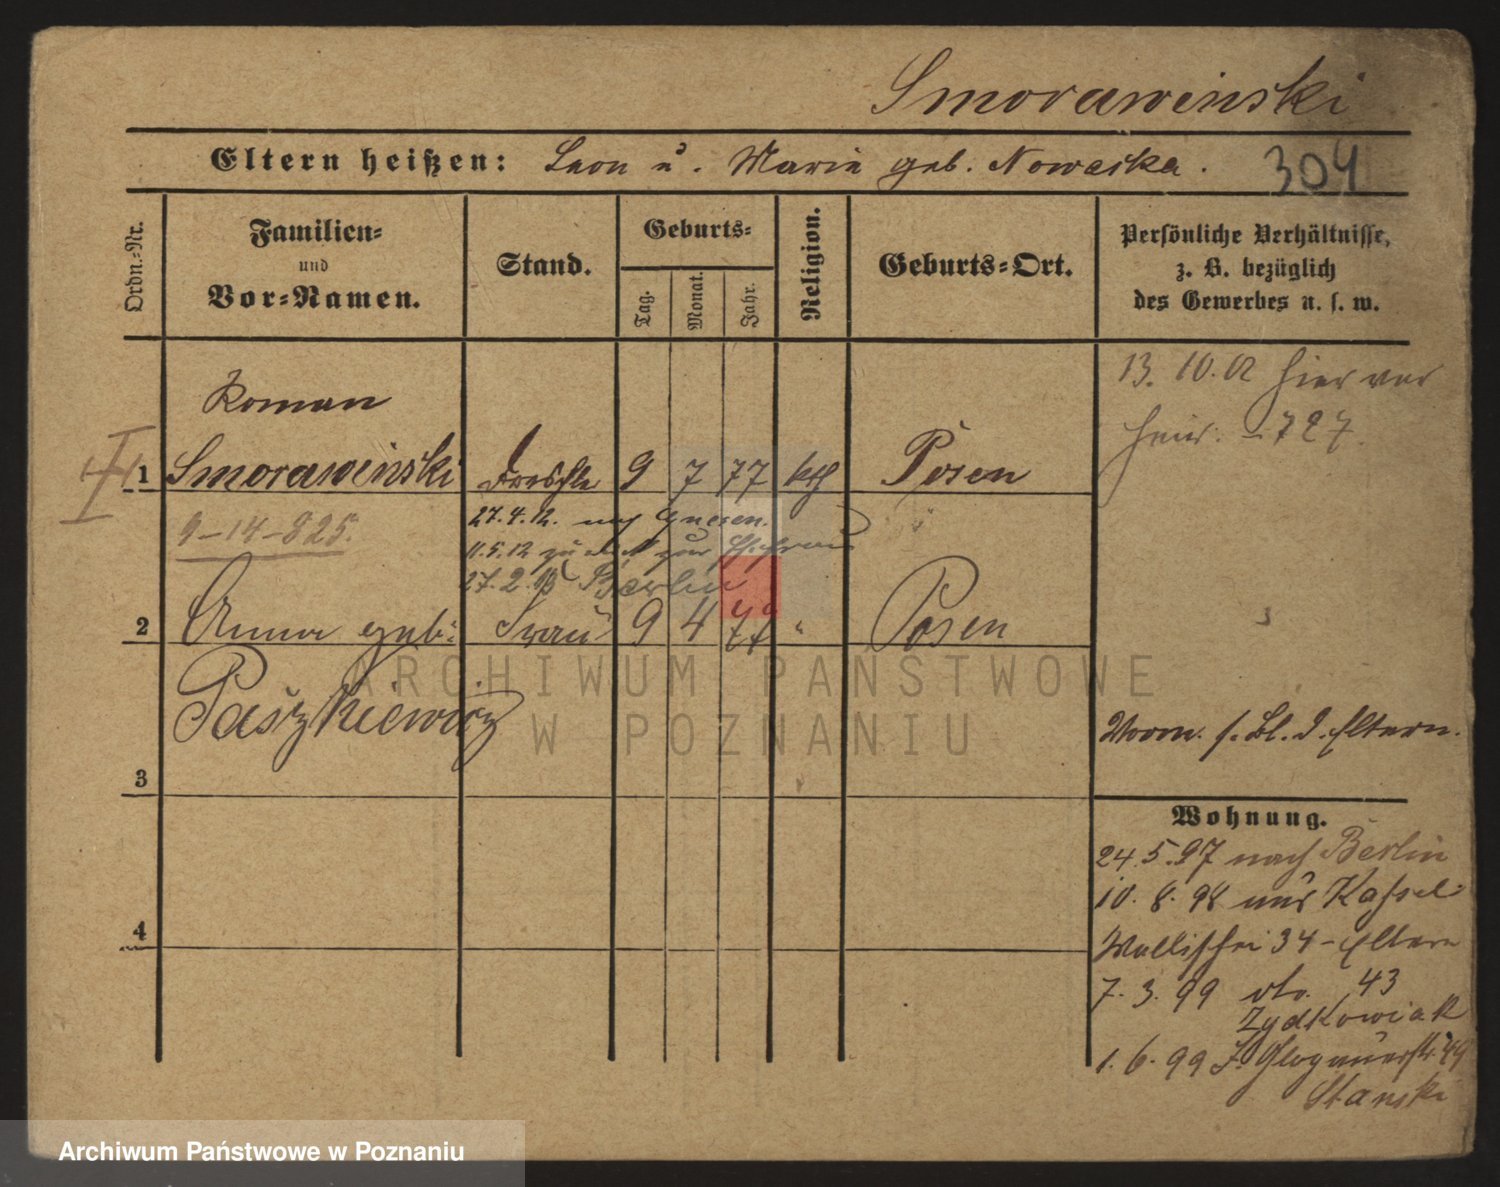 Smorawinski
Eltern heißen: Leon u. Maria geb. Nowacka.
304
Ordn.-Nr.
Familien-
und
Vor-Namen.
Stand.
Geburts-
Tag.
Monat.
Jahr.
Religion.
Geburts-Ort.
Persönliche Verhältnisse,
z. B. bezüglich
des Gewerbes u. s. w.
13. 10. 02 hier ver
heir. - 727.
Roman
1 Smorawinski Drechsler 9 7 77 kth Posen
9-14-825.
27.4.12. nach Gnesen.
11.5.12 zur Ehefrau
27.2. Berlin
2 Anna geb: Frau 9 4 79 " Posen
Paszkiewicz
ARCHIWUM PAŃSTWOWE
W POZNANIU
Vorm. s. Bl. d. Eltern.
3
4
Wohnung.
24.5.97 nach Berlin
10. 8. 98 aus Kassel
Wallischei 34 - Eltern
7. 3. 99 dto. 43
Zydkowiak
1. 6. 99 Glogauerstr. 49
Stanski
Archiwum Państwowe w Poznaniu